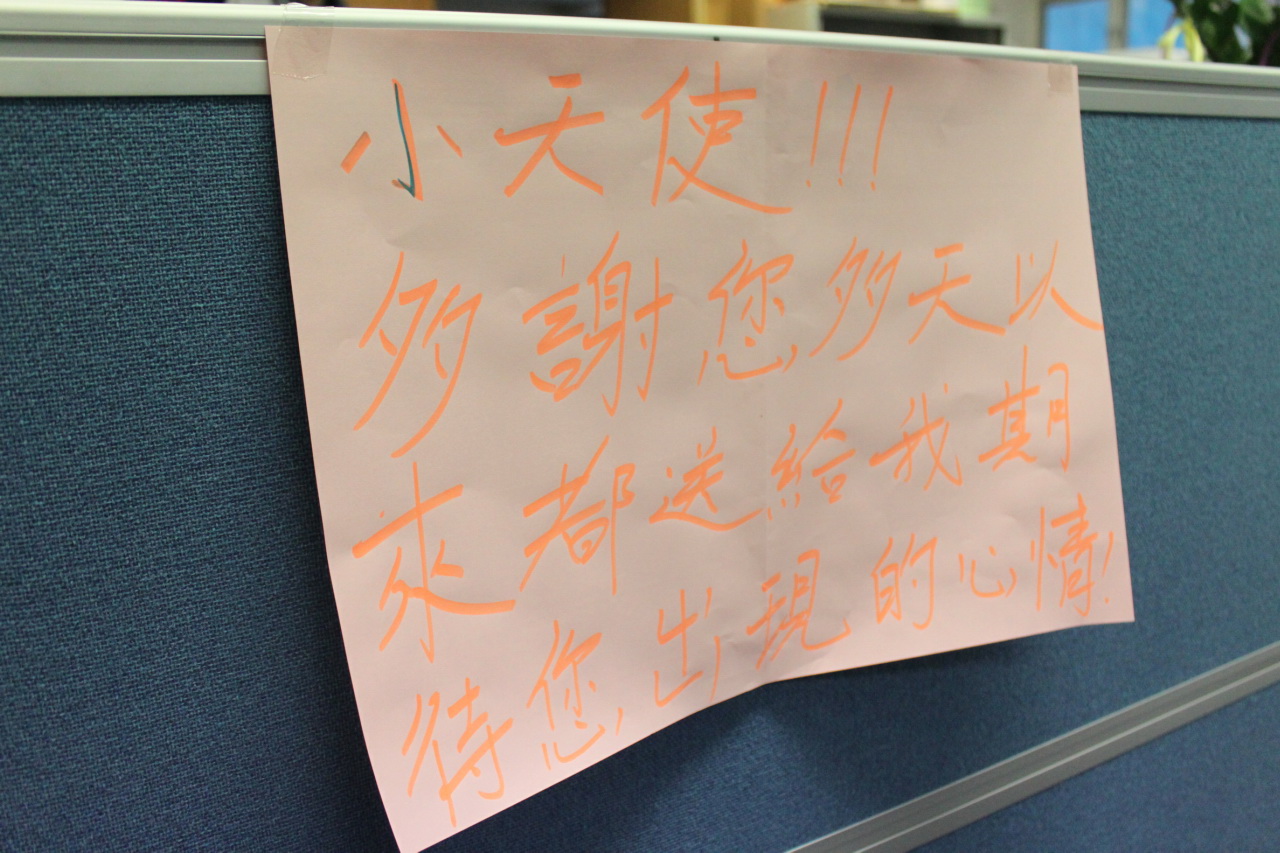 小天使!!!
多謝您多天以
來都送給我期
待您出現的心情!